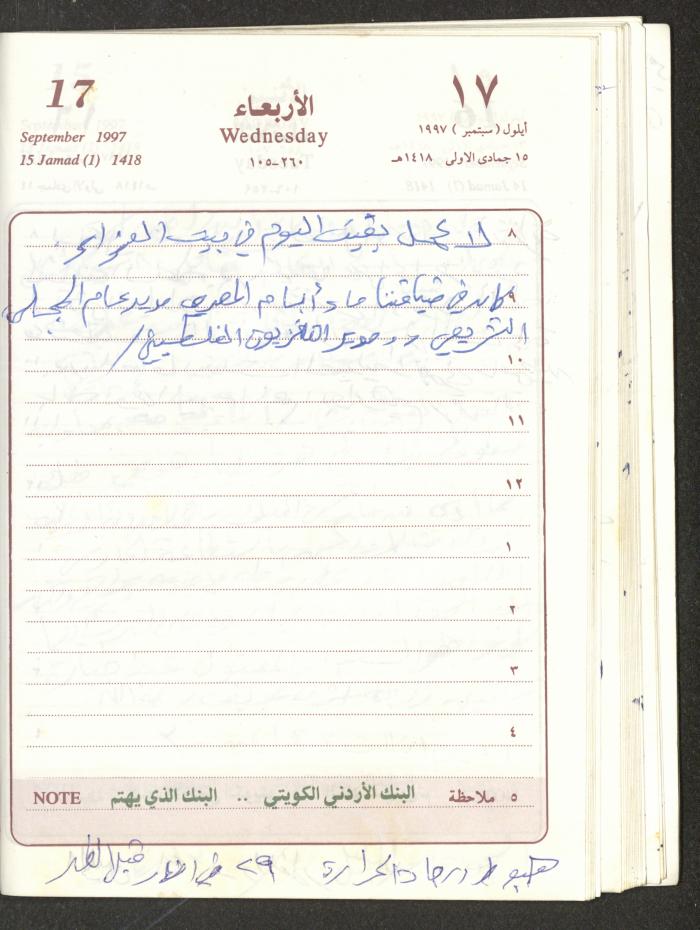 17
September 1997
15 Jamad (1) 1418
الأربعاء
Wednesday
٢٦٠-١٠٥
١٧
أيلول (سبتمبر) ١٩٩٧
١٥ جمادى الاولى ١٤١٨هـ
٨ لا عمل بقيت اليوم في بيت العزاء.
٩ كان في ضيافتنا مساء أنس المصري مدير عام المجلس
التشريعي ومدير التلفزيون الفلسطيني/
١٠
١١
١٢
١
٢
٣
٤
٥ ملاحظة البنك الأردني الكويتي .. البنك الذي يهتم NOTE
هبوط درجات الحرارة ٢٩ في قبل الظهر